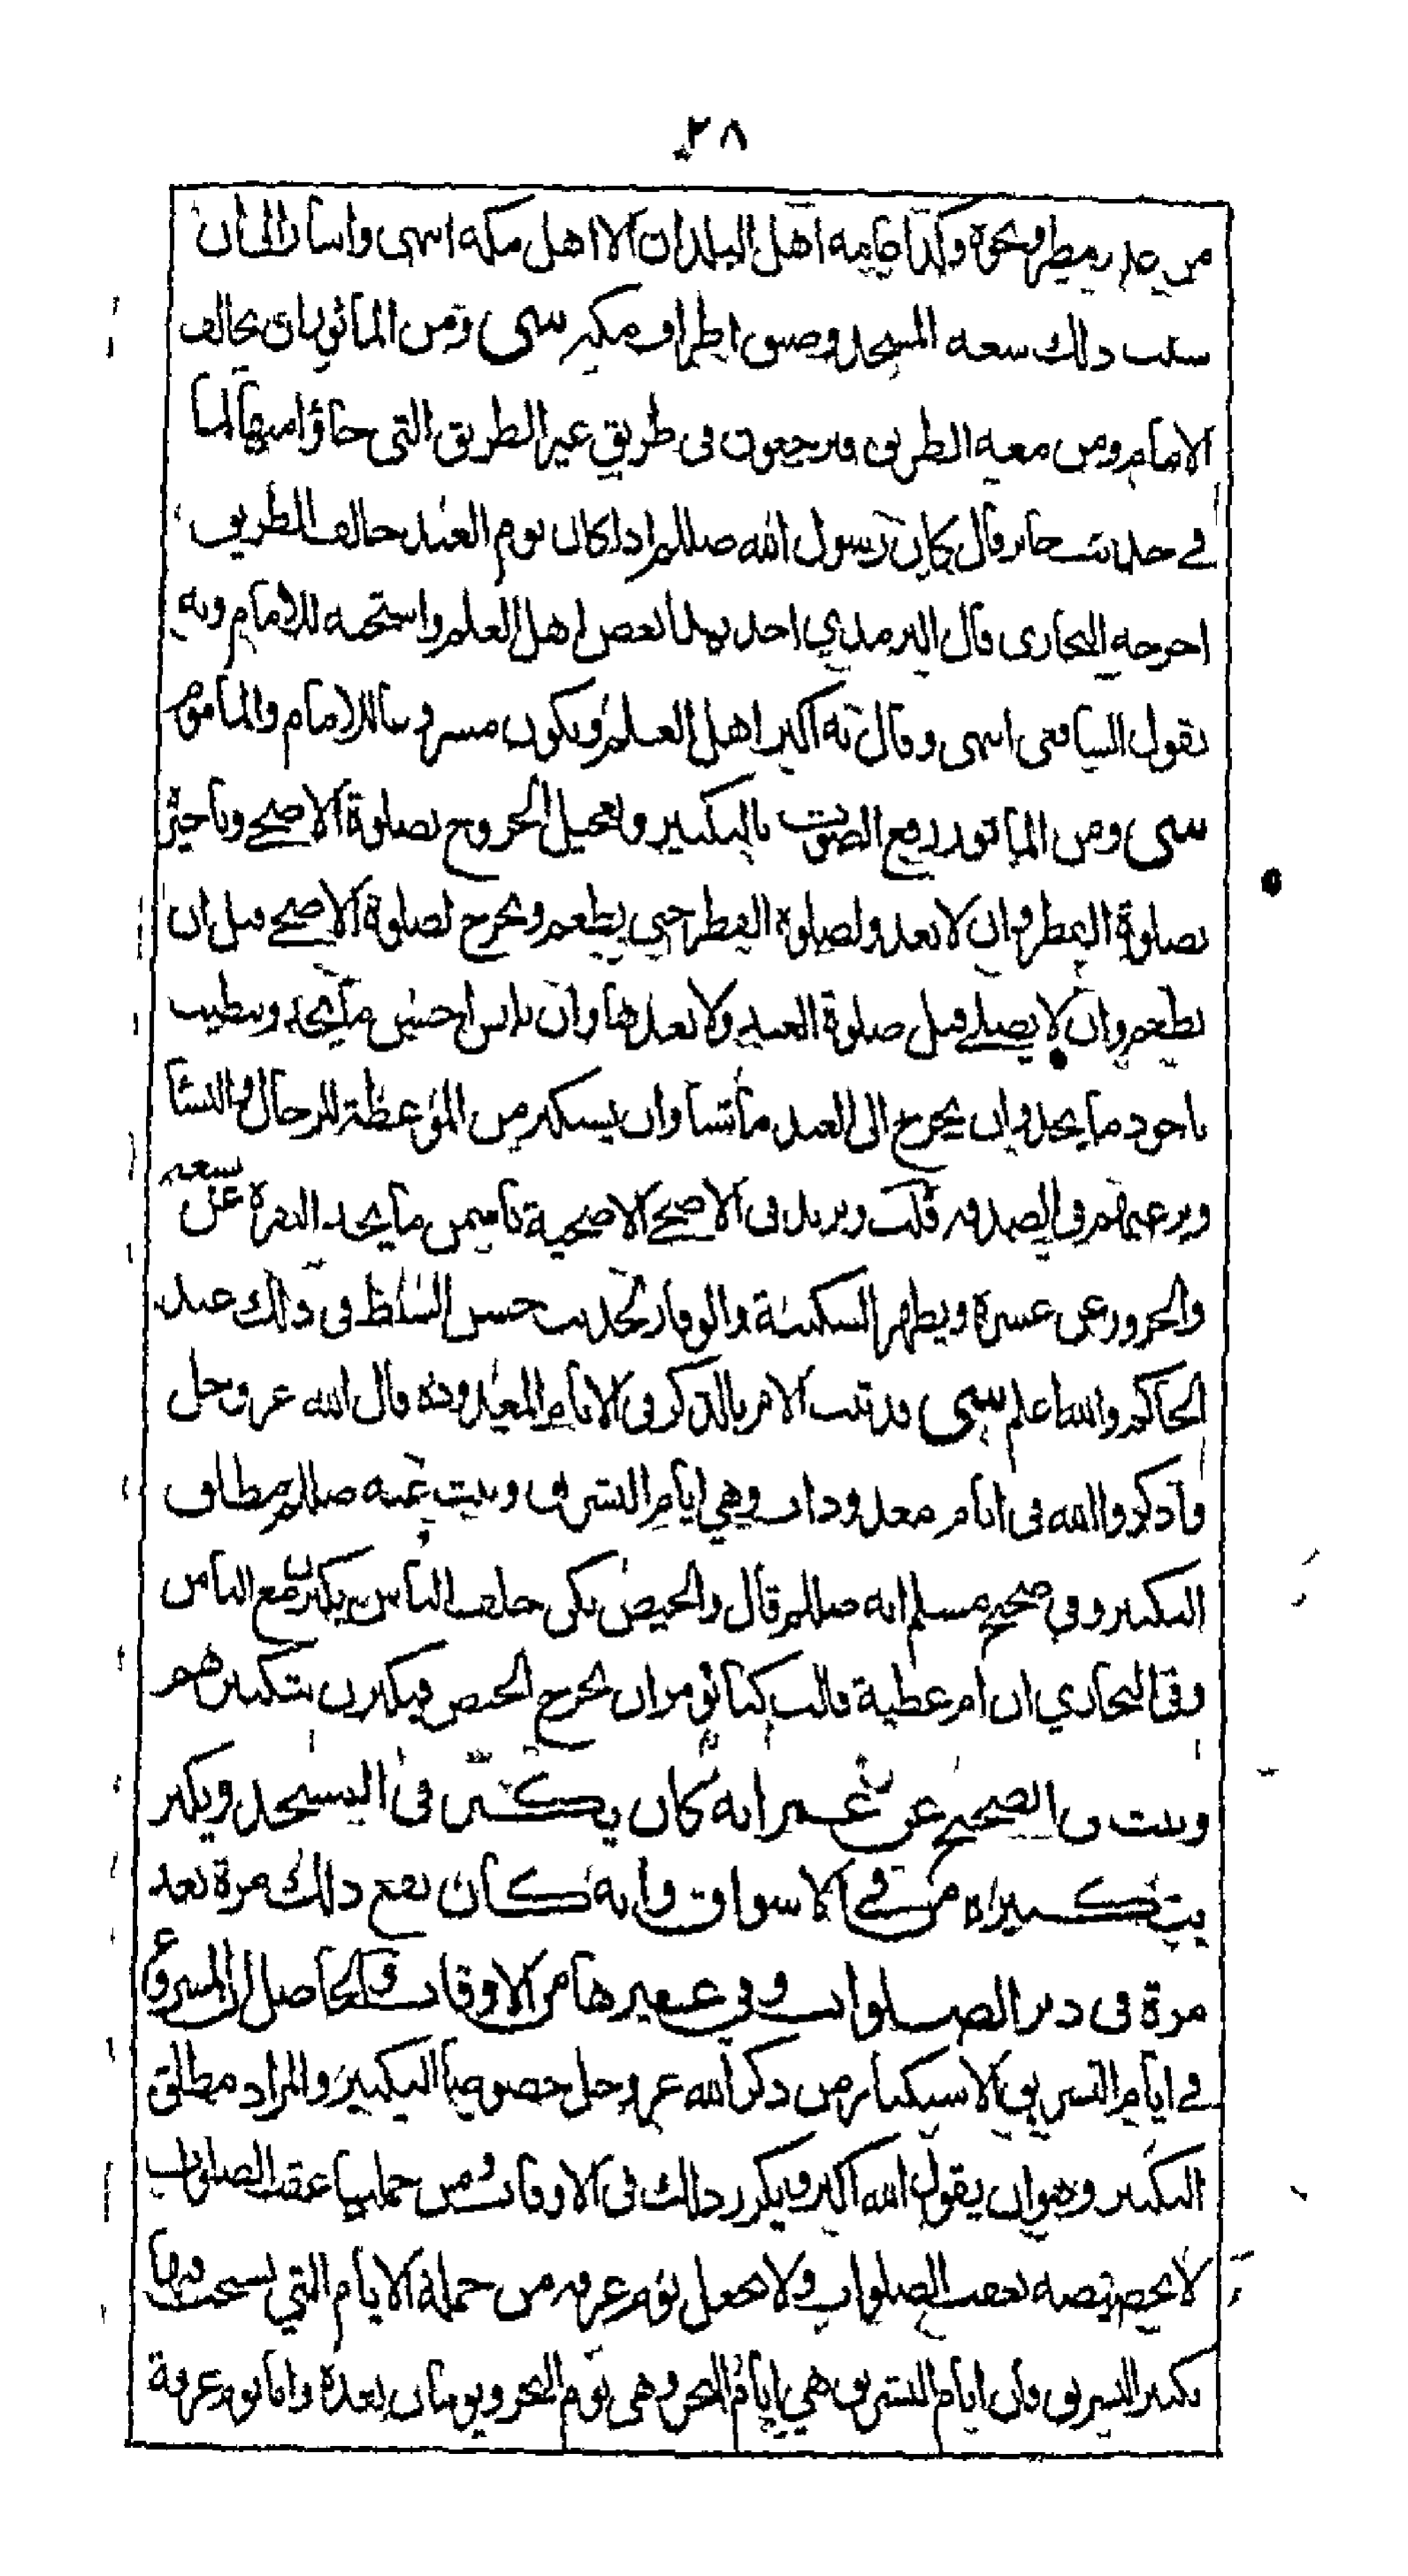 ٢٨
من عذر مطر ونحوه وكذا عامة اهل البلدان الا اهل مكة انتهى واشار الى ان
سبب ذلك سعة المسجد وضيق اطراف مكة سى ومن المأثور ان يخالف
الامام ومن معه الطريق فيرجعون في طريق غير الطريق التي جاؤا فيها لما
في حديث جابر قال كان رسول الله صللم اذا كان يوم العيد خالف الطريق
اخرجه البخاري قال الترمذي اخذ بهذا بعض اهل العلم واستحبه للامام وبه
يقول الشافعي انتهى وقال به اكثر اهل العلم ويكون مشروعا للامام والماموم
سى ومن الماثور رفع الصوت بالتكبير وتعجيل الخروج لصلوة الاضحى وتاخير
صلوة الفطر وان لا يغدو لصلوة الفطر حتى يطعم ويخرج لصلوة الاضحى قبل ان
يطعم وان لا يصلي قبل صلوة العيد ولا بعدها وان يلبس احسن ما يجد ويتطيب
باجود ما يجد وان يخرج الى العيد ماشيا وان يستكثر من الموعظة للرجال والنساء
ويرغبهم في الصدقة قلت ويزيد في الاضحى الاضحية باسمن ما يجد البقرة عن سبعة
والجزور عن عشرة ويظهر السكينة والوقار لحديث حسن السبط في ذلك عند
الحاكم والله اعلم سى قد ثبت الامر بالذكر في الايام المعدودة قال الله عز وجل
واذكروا الله في ايام معدودات وهي ايام التشريق وثبت عنه صللم مطلق
التكبير وفي صحيح مسلم انه صللم قال والحيض يكن خلف الناس يكبرن مع الناس
وفي البخاري ان ام عطية قالت كنا نؤمر ان نخرج الحيض فيكبرن بتكبيرهم
وثبت في الصحيح عن عمر انه كان يكبر في المسجد ويكبر
بتكبيره من في الاسواق وانه كان يقع ذلك مرة بعد
مرة في دبر الصلوات وفي غيرها من الاوقات والحاصل ان المشروع
في ايام التشريق الاستكثار من ذكر الله عز وجل خصوصا التكبير والمراد مطلق
التكبير وهو ان يقول الله اكبر ويكرر ذلك في الاوقات ومن جملتها عقب الصلوات
لا يخصصه بعقب الصلوات ولا يجعل يوم عرفة من جملة الايام التي يستحب فيها
تكبير التشريق فان ايام التشريق هي ايام النحر وهي يوم النحر ويومان بعده واما يوم عرفة